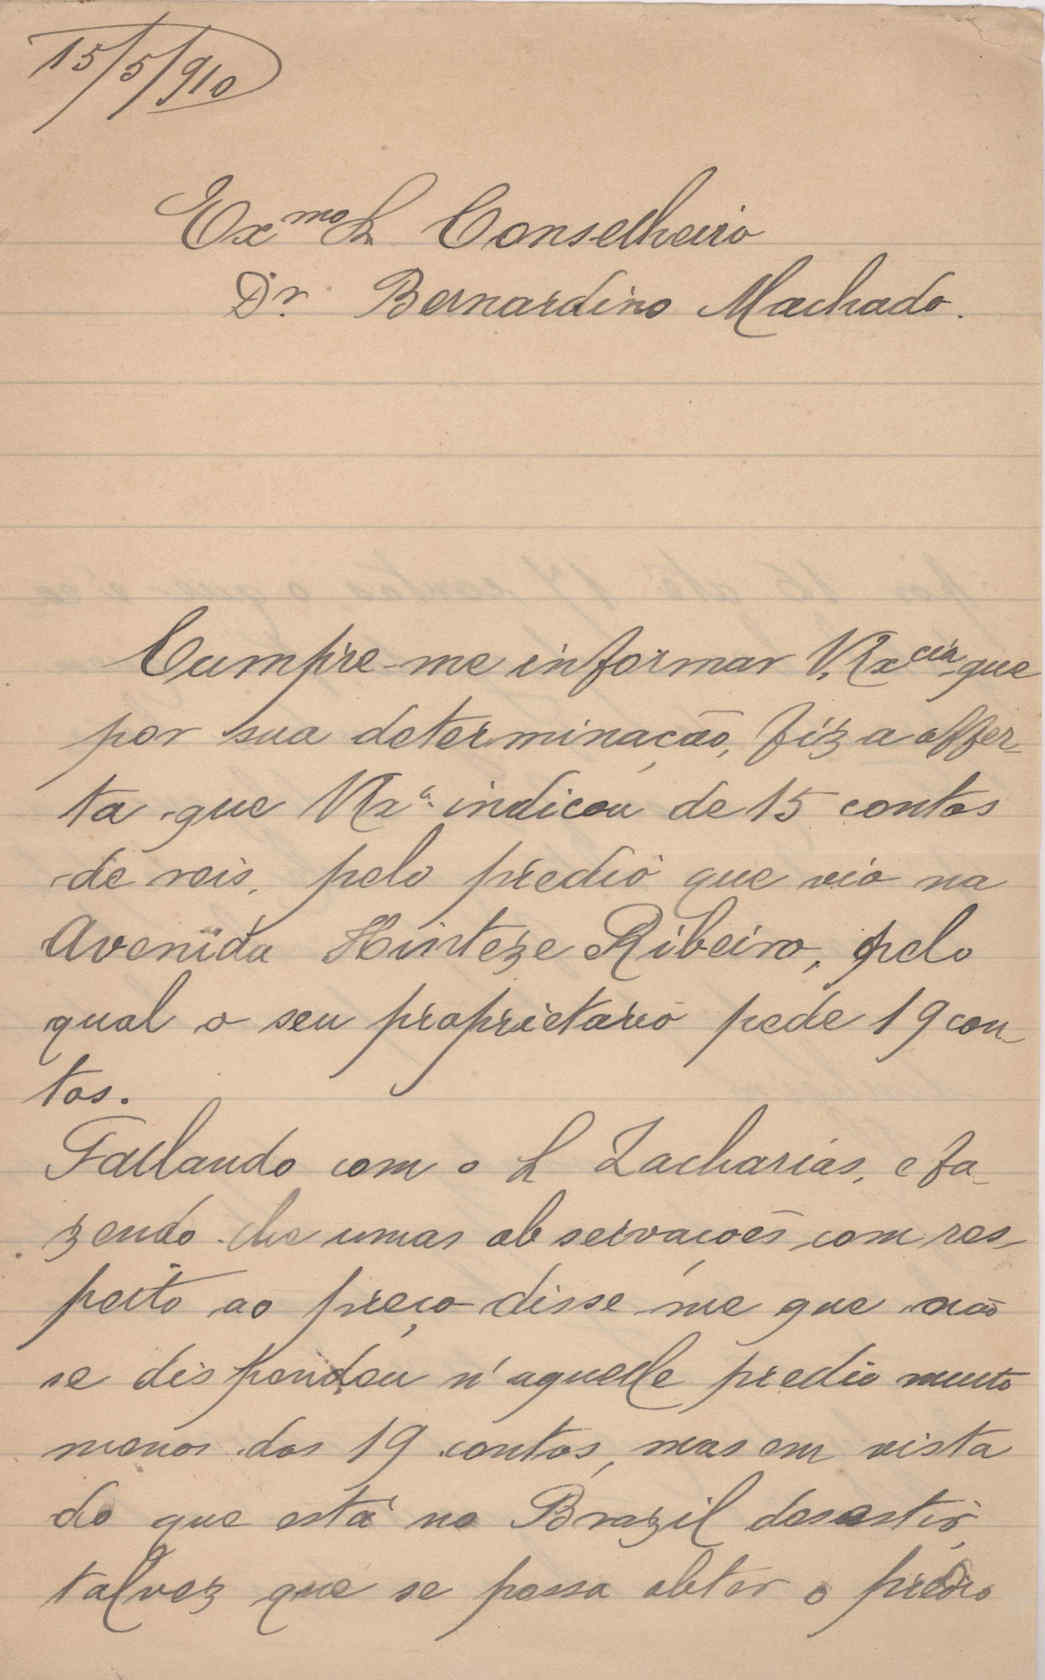 15/5/910
Exmo Sr Conselheiro
Dr. Bernardino Machado.
Cumpre-me informar V. Excia que
por sua determinação, fiz a offer-
ta que V Exa indicou de 15 contos
de reis, pelo predio que vio na
Avenida Hinteze Ribeiro, pelo
qual o seu proprietario pede 19 con-
tos.
Fallando com o Sr Zacharias, e fa-
zendo lhe umas observacoes com res-
peito ao preço disse me que não
se dispendeu n'aquelle predio muito
menos dos 19 contos, mas em vista
do que está no Brazil
talvez que se possa obter o predio